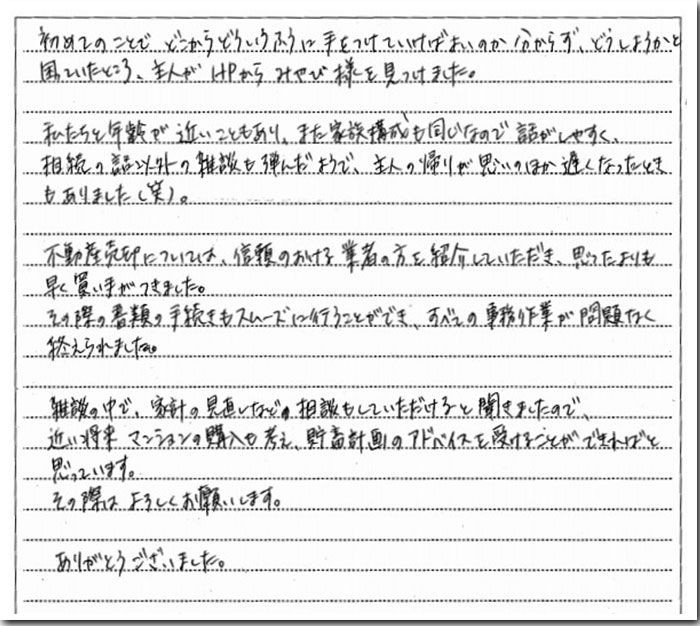 初めてのことで どこからどういうふうに手をつけていけばよいのか 分からず、どうしようかと
困っていたところ、主人が HPから みやび様を見つけました。
私たちと年齢が 近いこともあり、また家族構成も同じなので 話がしやすく、
相続の話以外の雑談も弾んだようで、主人の帰りが思いのほか 遅くなったとき
もありました(笑)。
不動産売却については、信頼のおける 業者の方を紹介していただき、思ったよりも
早く買い手がつきました。
その際の書類の手続きもスムーズに行うことができ、すべての事務作業が 問題なく
終えられました。
雑談の中で、家計の見直しなどの相談もしていただけると聞きましたので、
近い将来 マンションの購入も考え、貯蓄計画のアドバイスを受けることができればと
思っています。
その際は よろしくお願いします。
ありがとうございました。